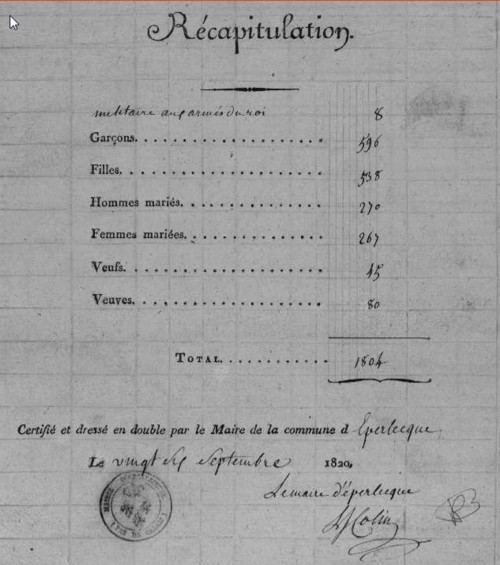 Récapitulation.
militaire aux armés du roi 8
Garçons. 596
Filles. 538
Hommes mariés. 270
Femmes mariées. 267
Veufs. 45
Veuves. 80
TOTAL. 1804
Certifié et dressé en double par le Maire de la commune d Eperlecque
Le vingt six Septembre 1820,
Le maire d'éperlecque
Colin